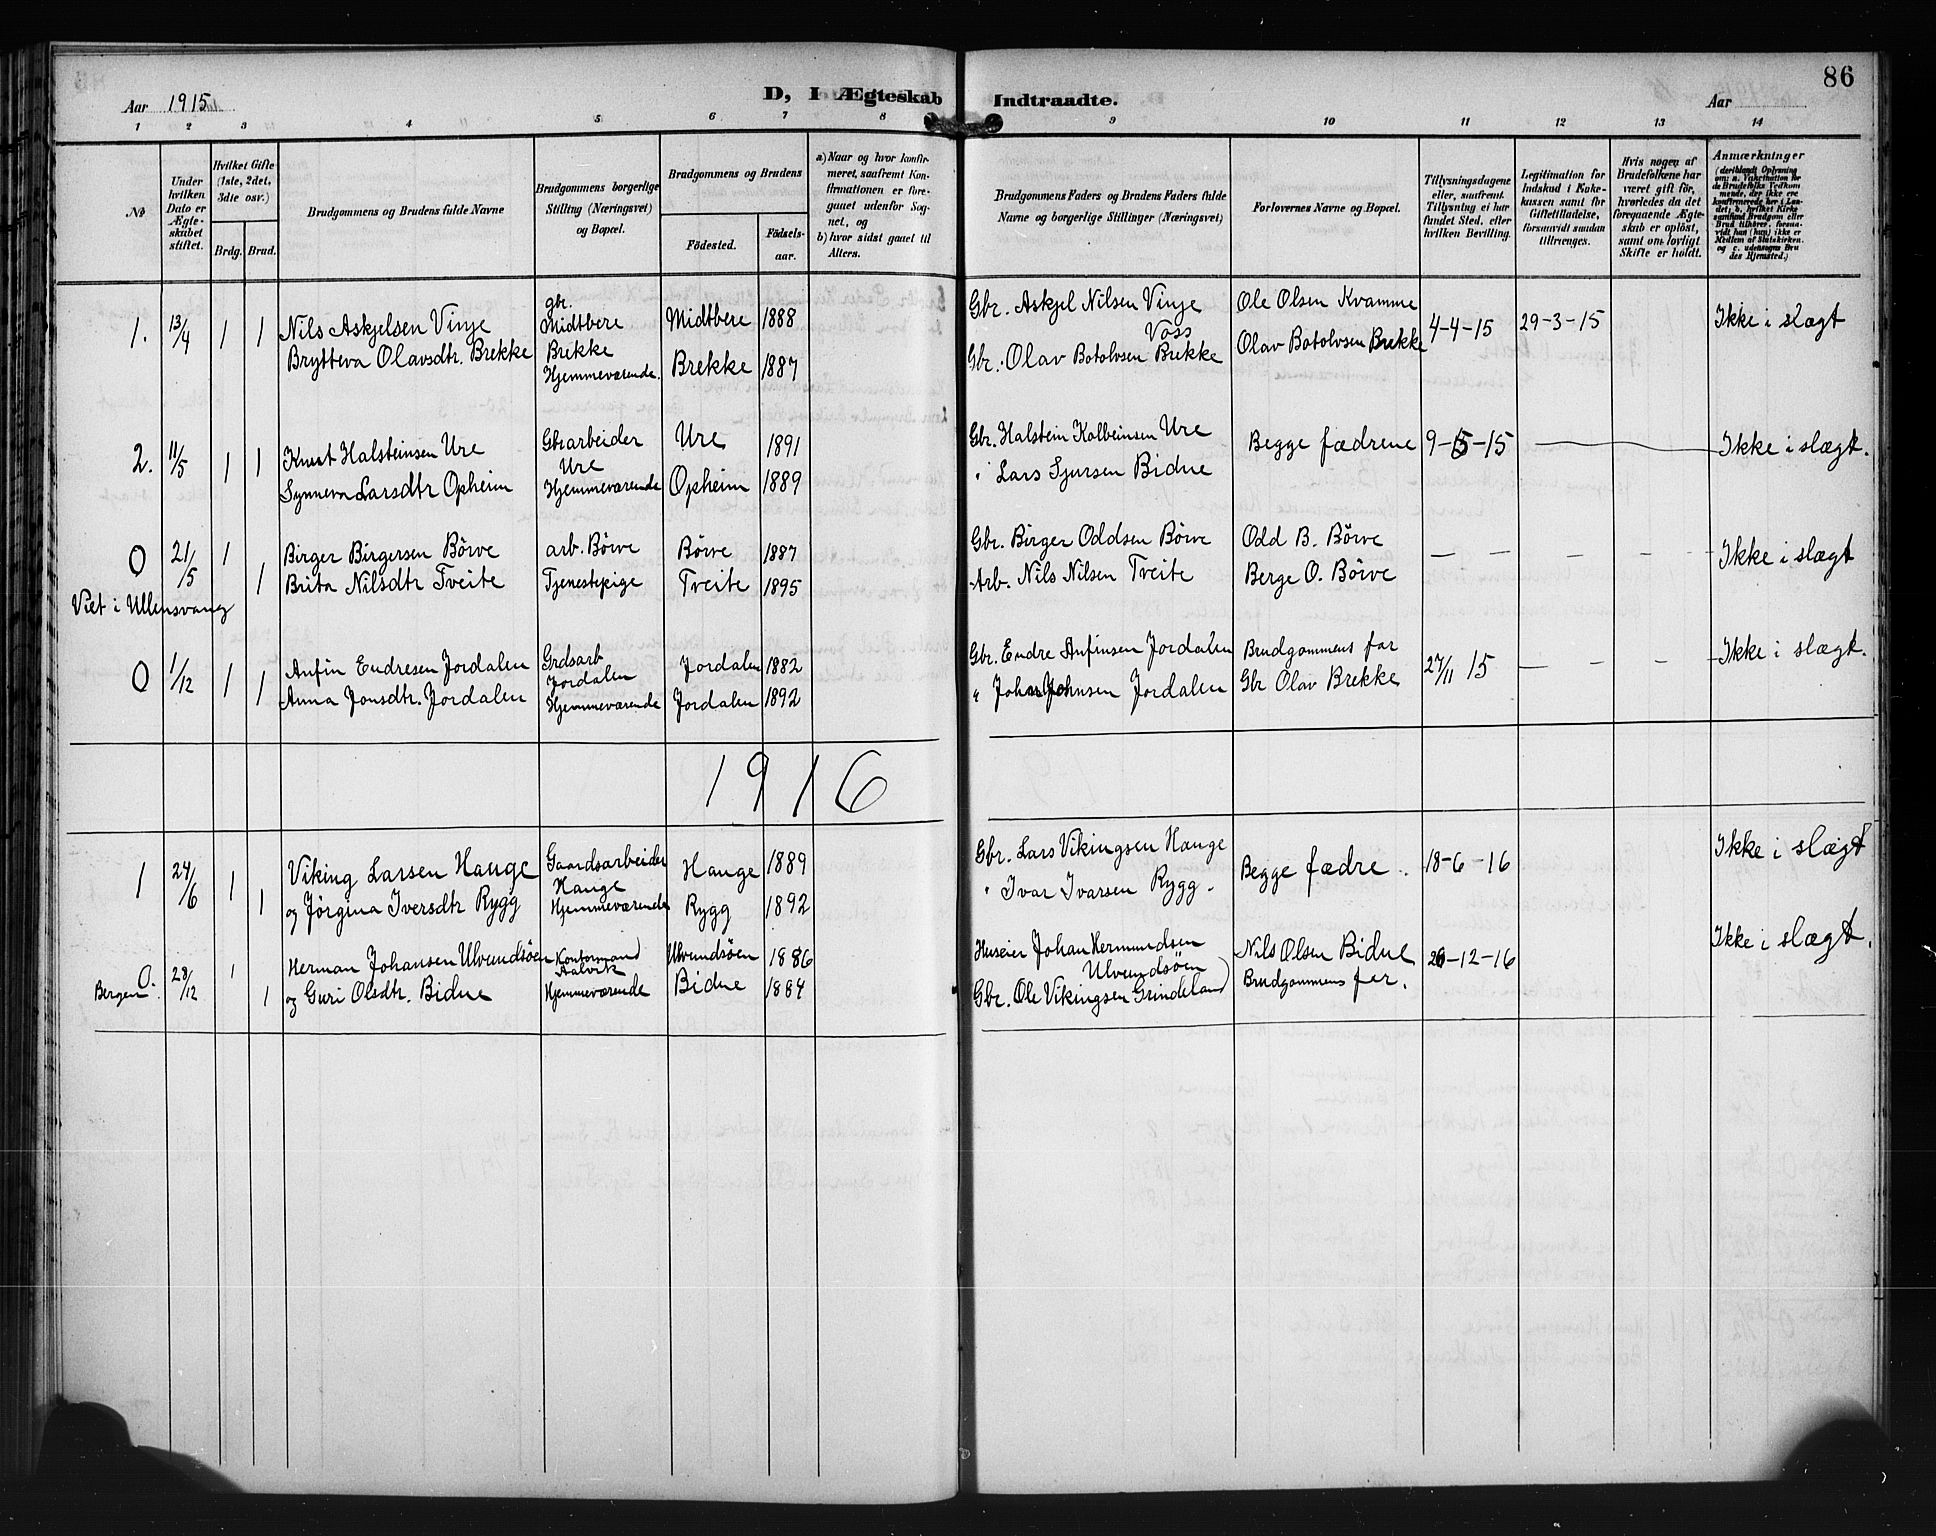 86
Aar 1915
D, I Ægteskab Indtraadte.
Aar
1 2 3 4 5 6 7 8 9 10 11 12 13 14
№
Under hvilken Dato er Ægteskabet stiftet.
Hvilket Gifte (1ste, 2det, 3die osv.)
Brdg. Brud.
Brudgommens og Brudens fulde Navne
Brudgommens borgerlige Stilling (Næringsvei) og Bopæl.
Brudgommens og Brudens
Fødested.
Fødselsaar.
a) Naar og hvor konfirmeret, saafremt Konfirmationen er foregaaet udenfor Sognet, og
b) hvor sidst gaaet til Alters.
Brudgommens Faders og Brudens Faders fulde Navne og borgerlige Stillinger (Næringsvei)
Forlovernes Navne og Bopæl.
Tillysningsdagene eller, saafremt Tillysning ei har fundet Sted, efter hvilken Bevilling.
Legitimation for Indskud i Enkekassen samt for Giftetilladelse, forsaavidt saadan tiltrænges.
Hvis nogen af Brudefolkene har været gift før, hvorledes da det foregaaende Ægteskab er opløst, samt om lovligt Skifte er holdt.
Anmærkninger (deriblandt Oplysning om: a. Vakcination for de Brudefolks Vedkommende, der ikke ere konfirmerede her i Landet; b. hvilket Kirkesamfund Brudgom eller Brud tilhører, forsaavidt han (hun) ikke er Medlem af Statskirken, og c. udensogns Brudes Hjemsted.)
1. 13/4 1 1 Nils Askjelsen Vinje gbr. Midtbere Midtbere 1888 Gbr. Askjel Nilsen Vinje Voss Ole Olsen Kvamme 4-4-15 29-3-15 Ikke i slægt
Brytteva Olavsdtr. Brekke Brekke Hjemmeværende. Brekke 1887 Gbr. Olav Botolvsen Brekke Olav Botolvsen Brekke
2. 11/5 1 1 Knut Halsteinsen Ure Gbrarbeider Ure Ure 1891 Gbr. Halstein Kolbeinsen Ure Begge fædrene 9-5-15 Ikke i slægt.
Synneva Larsdtr Opheim Hjemmeværende Opheim 1889 " Lars Sjursen Bidne
0 21/5 1 Birger Birgersen Börve arb. Börve Börve 1887 Gbr. Birger Oddsen Börve Odd B. Börve — — — — — Ikke i slægt
1 Brita Nilsdtr Tveite Tjenestepige Tveite 1895 Arb. Nils Nilsen Tveite Berge O. Börve
Viet i Ullensvang
0 1/12 1 1 Anfin Endresen Jordalen Grdsarb Jordalen Jordalen 1882 Gbr. Endre Anfinsen Jordalen Brudgommens far 27/11 15 — — — Ikke i slægt.
Anna Jonsdtr. Jordalen Hjemmeværende Jordalen 1892 " Johnsen Jordalen Gbr Olav Brekke
1916
1 24/6 1 Viking Larsen Hauge Gaardsarbeider Hauge Hauge 1889 Gbr. Lars Vikingsen Hauge Begge fædre. 18-6-16 Ikke i slægt
1 og Jørgina Iversdtr Rygg Hjemmeværende Rygg 1892 " Ivar Ivarsen Rygg.
0. 28/12 1 Herman Johansen Ulvundsöen Kontormand Aalvik Ulvundsöen 1886 Huseier Johan Hermundsen Ulvundsöen Nils Olsen Bidne -12-16 Ikke i slægt.
Bergen 1 og Guri Olsdtr. Bidne Hjemmeværende Bidne 1884 Gbr. Ole Vikingsen Grindeland Brudgommens far.